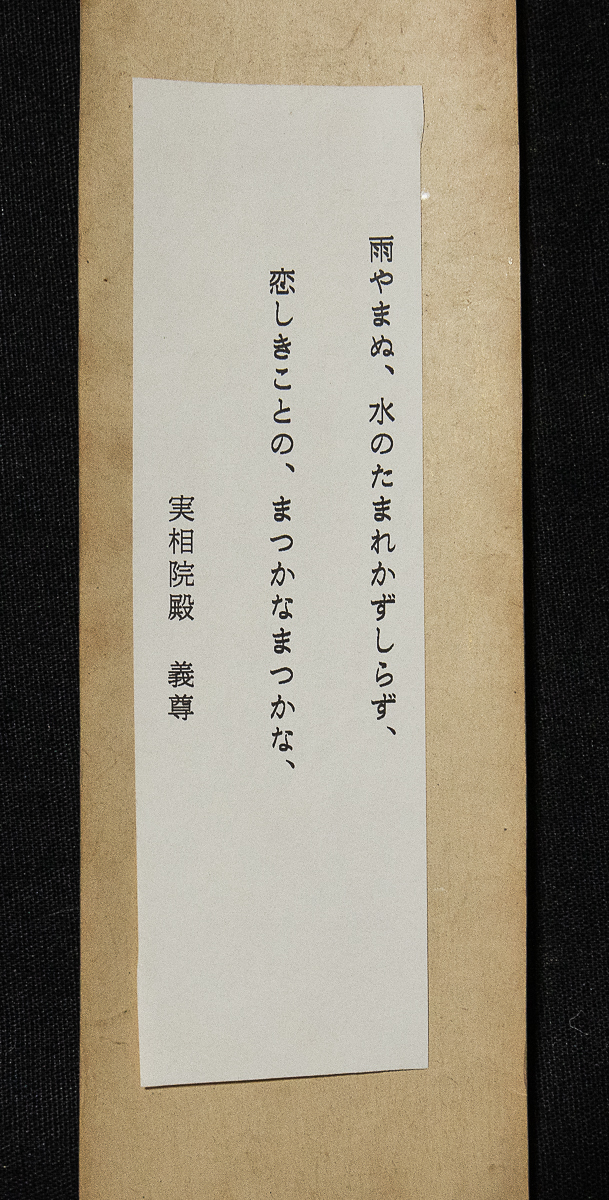 雨やまぬ、水のたまれかずしらず、
恋しきことの、まつかなまつかな、
実相院殿　義尊